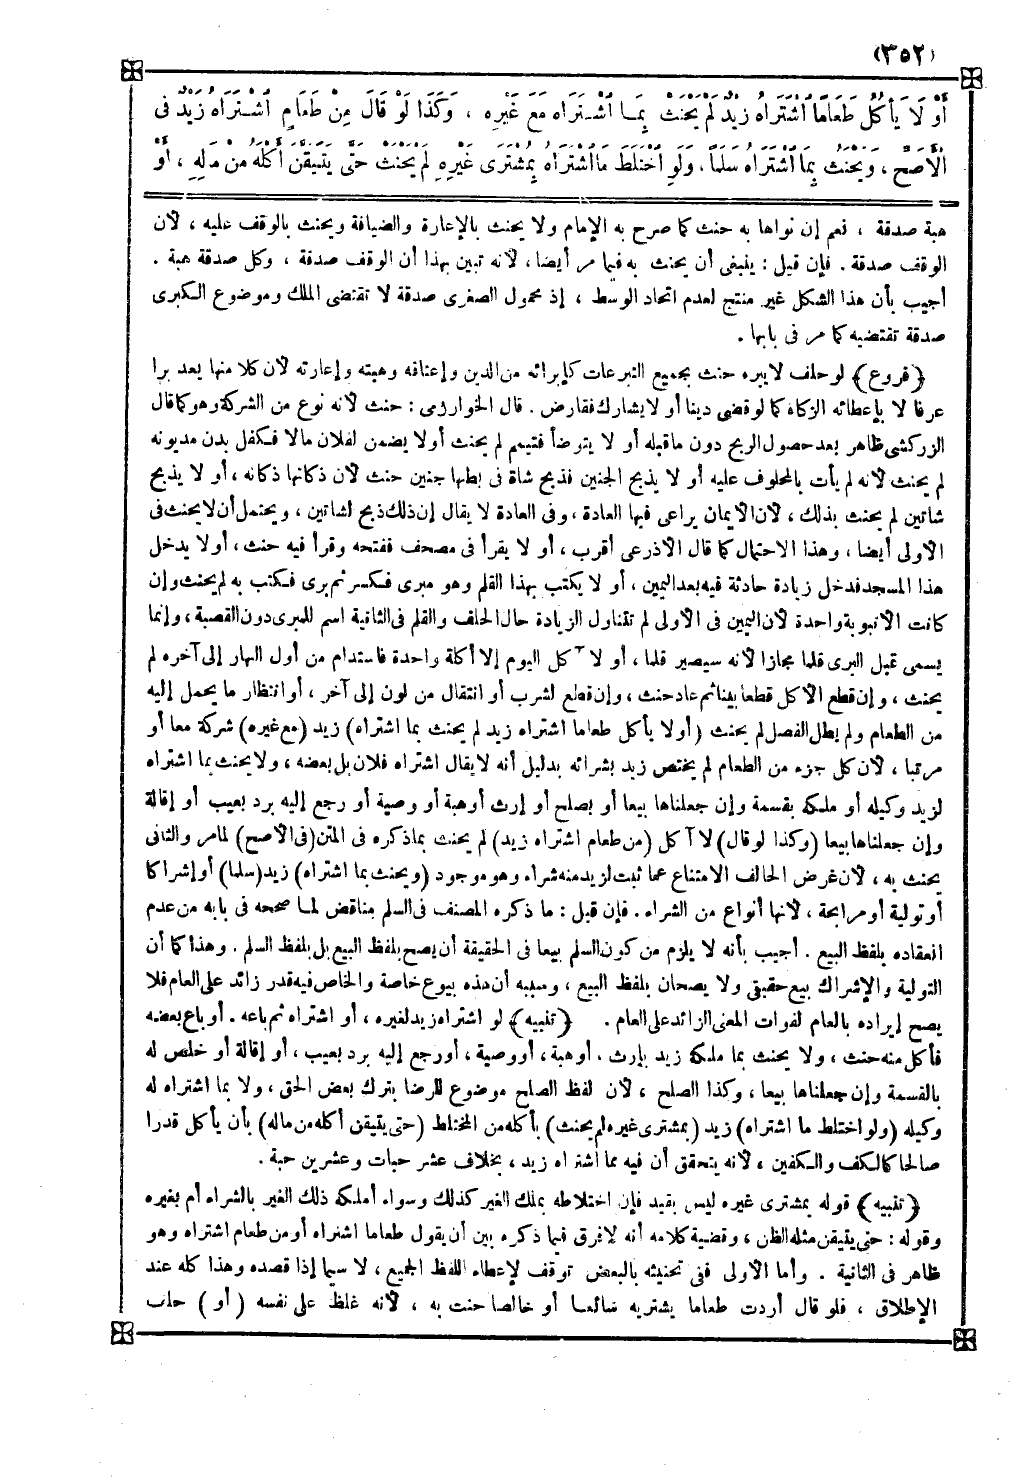 (٣٥٢)
أَوْ لَا يَأْكُلُ طَعَامًا اشْتَرَاهُ زَيْدٌ لَمْ يَحْنَثْ بِمَا اشْتَرَاهُ مَعَ غَيْرِهِ ، وَكَذَا لَوْ قَالَ مِنْ طَعَامٍ اشْتَرَاهُ زَيْدٌ فى
الْأَصَحِّ ، وَيَحْنَثُ بِمَا اشْتَرَاهُ سَلَمًا ، وَلَوِ اخْتَلَطَ مَا اشْتَرَاهُ بِمُشْتَرَى غَيْرِهِ لَمْ يَحْنَثْ حَتَّى يَتَيَقَّنَ أَكْلَهُ مِنْ مَالِهِ ، أَوْ
هبة صدقة ، نعم إن نواها به حنث كما صرح به الإمام ولا يحنث بالإعارة والضيافة ويحنث بالوقف عليه ، لأن
الوقف صدقة . فإن قيل : ينبغى أن يحنث به فيما مر أيضا ، لأنه تبين بهذا أن الوقف صدقة ، وكل صدقة هبة .
أجيب بأن هذا الشكل غير منتج لعدم اتحاد الوسط ، إذ محمول الصغرى صدقة لا تقتضى الملك وموضوع الكبرى
صدقة تقتضيه كما مر فى بابها .
﴿فروع﴾ لو حلف لا يبره حنث بجميع التبرعات كإبرائه من الدين وإعتاقه وهبته وإعارته لأن كلا منها يعد برا
عرفا لا بإعطائه الزكاة كما لو قضى دينا أو لا يشارك فقارض . قال الخوارزمى : حنث لأنه نوع من الشركة وهو كما قال
الزركشى ظاهر بعد حصول الربح دون ما قبله أو لا يتوضأ فتيمم لم يحنث أو لا يضمن لفلان مالا فكفل بدن مديونه
لم يحنث لأنه لم يأت بالمحلوف عليه أو لا يذبح الجنين فذبح شاة فى بطنها جنين حنث لأن ذكاتها ذكاته ، أو لا يذبح
شاتين لم يحنث بذلك ، لأن الأيمان يراعى فيها العادة ، وفى العادة لا يقال إن ذلك ذبح لشاتين ، ويحتمل أن لا يحنث فى
الأولى أيضا ، وهذا الاحتمال كما قال الأذرعى أقرب ، أو لا يقرأ فى مصحف ففتحه وقرأ فيه حنث ، أو لا يدخل
هذا المسجد فدخل زيادة حادثة فيه بعد اليمين ، أو لا يكتب بهذا القلم وهو مبرى فكسر ثم برى فكتب به لم يحنث وإن
كانت الأنبوبة واحدة لأن اليمين فى الأولى لم تتناول الزيادة حال الحلف والقلم فى الثانية اسم للمبرى دون القصبة ، وإنما
يسمى قبل البرى قلما مجازا لأنه سيصير قلما ، أو لا آكل اليوم إلا أكلة واحدة فاستدام من أول النهار إلى آخره لم
يحنث ، وإن قطع الأكل قطعا بينا ثم عاد حنث ، وإن قطع لشرب أو انتقال من لون إلى آخر ، أو انتظار ما يحمل إليه
من الطعام ولم يطل الفصل لم يحنث (أو لا يأكل طعاما اشتراه زيد لم يحنث بما اشتراه) زيد (مع غيره) شركة معا أو
مرتبا ، لأن كل جزء من الطعام لم يختص زيد بشرائه بدليل أنه لا يقال اشتراه فلان بل بعضه ، ولا يحنث بما اشتراه
لزيد وكيله أو ملكه بقسمة وإن جعلناها بيعا أو بصلح أو إرث أو هبة أو وصية أو رجع إليه برد بعيب أو إقالة
وإن جعلناها بيعا (وكذا لو قال) لا آكل (من طعام اشتراه زيد) لم يحنث بما ذكره فى المتن (فى الأصح) لما مر والثانى
يحنث به ، لأن غرض الحالف الامتناع عما ثبت لزيد منه شراء وهو موجود (ويحنث بما اشتراه) زيد (سلما) أو إشراكا
أو تولية أو مرابحة ، لأنها أنواع من الشراء . فإن قيل : ما ذكره المصنف فى السلم مناقض لما صححه فى بابه من عدم
انعقاده بلفظ البيع . أجيب بأنه لا يلزم من كون السلم بيعا فى الحقيقة أن يصح بلفظ البيع بل بلفظ السلم . وهذا كما أن
التولية والإشراك بيع حقيقى ولا يصحان بلفظ البيع ، وسببه أن هذه بيوع خاصة والخاص فيه قدر زائد على العام فلا
يصح إيراده بالعام لفوات المعنى الزائد على العام . ﴿تنبيه﴾ لو اشتراه زيد لغيره ، أو اشتراه ثم باعه . أو باع بعضه
فأكل منه حنث ، ولا يحنث بما ملكه زيد بإرث . أو هبة ، أو وصية ، أو رجع إليه برد بعيب ، أو إقالة أو خلص له
بالقسمة وإن جعلناها بيعا ، وكذا الصلح ، لأن لفظ الصلح موضوع للرضا بترك بعض الحق ، ولا بما اشتراه له
وكيله (ولو اختلط ما اشتراه) زيد (بمشترى غيره لم يحنث) بأكله من المختلط (حتى يتيقن أكله من ماله) بأن يأكل قدرا
صالحا كالكف والكفين ، لأنه يتحقق أن فيه مما اشتراه زيد ، بخلاف عشر حبات وعشرين حبة .
﴿تنبيه﴾ قوله بمشترى غيره ليس بقيد فإن اختلاطه بملك الغير كذلك وسواء أملكه ذلك الغير بالشراء أم بغيره
وقوله : حتى يتيقن مثله الظن ، وقضية كلامه أنه لا فرق فيما ذكره بين أن يقول طعاما اشتراه أو من طعام اشتراه وهو
ظاهر فى الثانية . وأما الأولى ففى تحنيثه بالبعض توقف لإعطاء اللفظ الجميع ، لا سيما إذا قصده وهذا كله عند
الإطلاق ، فلو قال أردت طعاما يشتريه شائعا أو خالصا حنث به ، لأنه غلظ على نفسه (أو) حلف